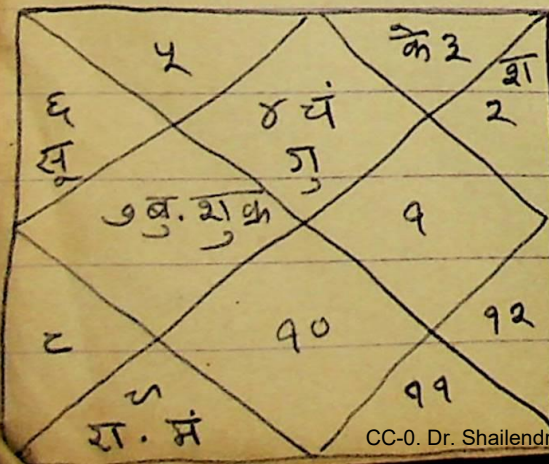 ५
के ३
श
२
६
सू
४ चं
गु
७ बु. शुक्र
१
८
१०
१२
९
रा. मं
११
CC-0. Dr. Shailendr